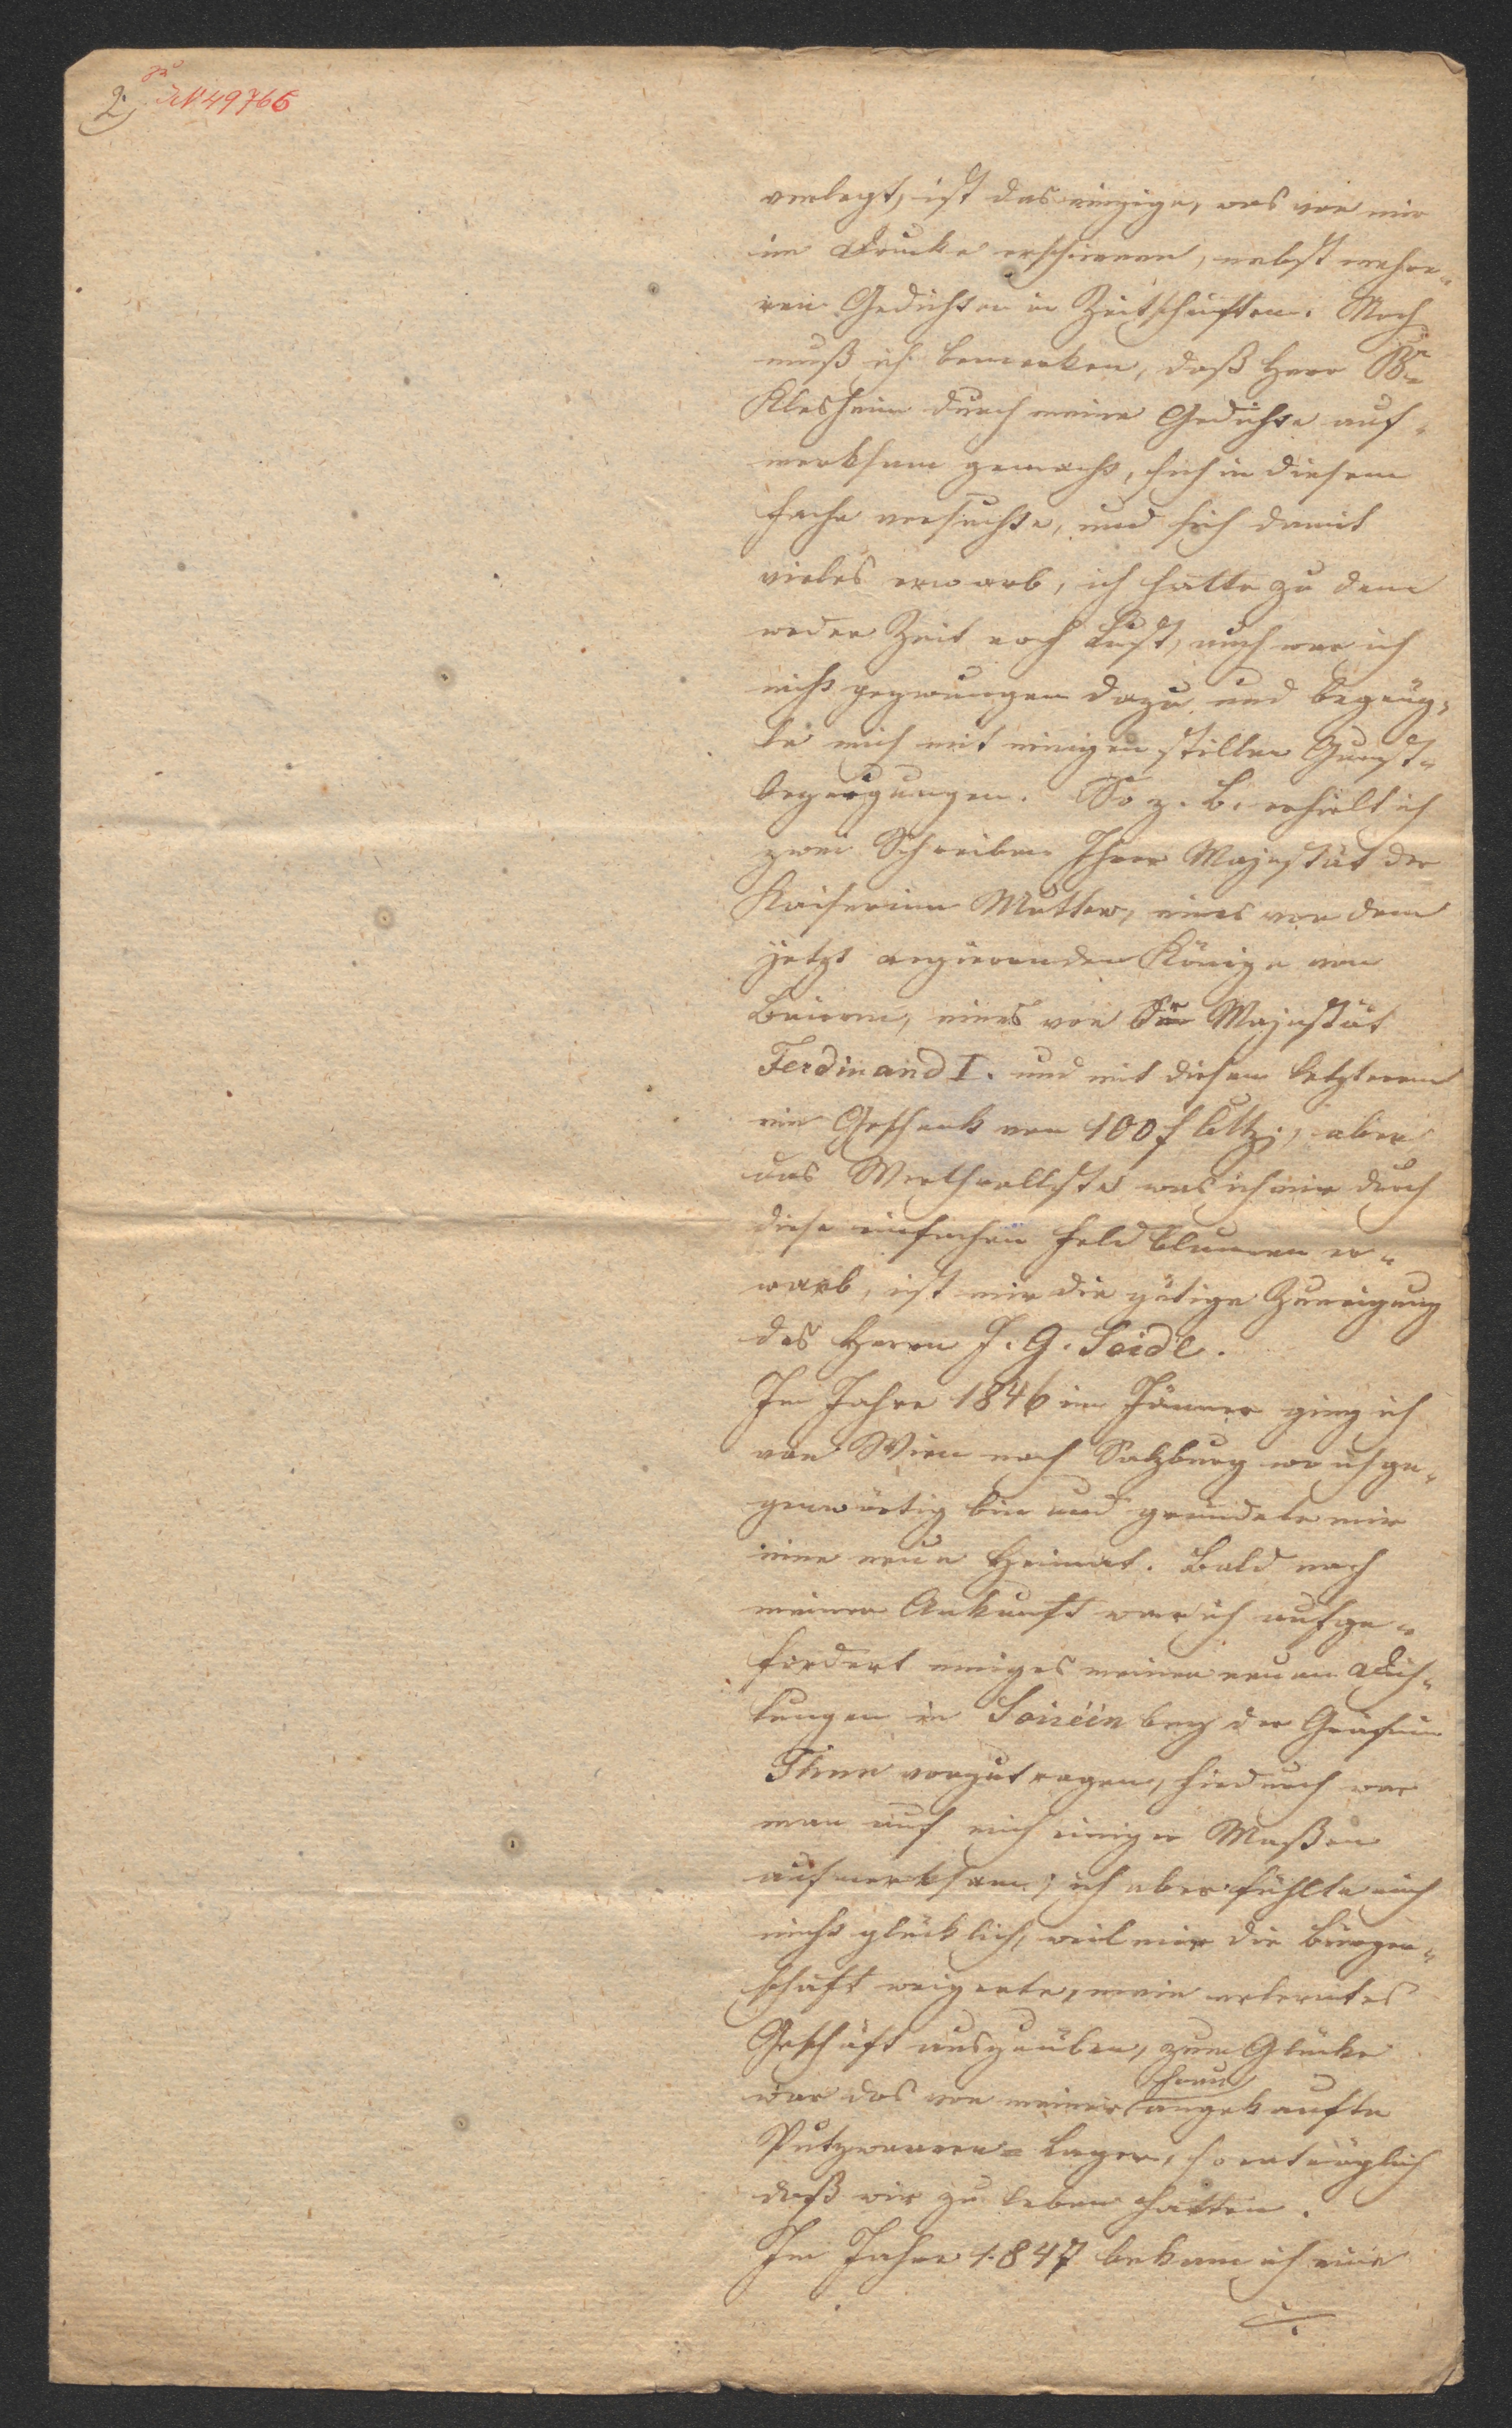 2.)
zu
IN 49766
verlegt, ist das einzige, was von mir
im Drucke erschienen, nebst mehre„
ren Gedichten in Zeitschriften. Noch
muß ich bemerken, daß Herr Bn
Klesheim durch meine Gedichte auf„
merksam gemacht, sich in diesem
Fache versuchte, und sich damit
vieles erwarb, ich hatte zu dem
weder Zeit noch Lust, auch war ich
nicht gezwungen dazu und begnüg„
te mich mit einigen stillen Gunst„
bezeigungen. So z. B. erhielt ich
zwei Schreiben Ihrer Majestät der
Kaiserinn Mutter, eines von dem
jetzt regierenden Könige von
Baiern, eines von Sr Majestät
Ferdinand I. und mit diesem letzteren
ein Geschenk von 100 f CMz; aber
das Werthvollste was ich mir durch
diese einfachen Feldblumen er„
warb, ist mir die gütige Zuneigung
des Herrn J. G. Seidl.
Im Jahre 1846 im Jänner ging ich
von Wien nach Salzburg wo ich ge„
genwärtig bin und gründete mir
eine neue Heimat. Bald nach
meiner Ankunft war ich aufge„
fordert einiges meiner neuen Dich„
tungen in Soiréen bey der Gräfinn
Thun vorzutragen, hiedurch war
man auf mich einiger Maßen
aufmerksam; ich aber fühlte mich
nicht glücklich, weil mir die Bürger„
schaft weigerte, mein erlerntes
Geschäft auszuüben, zum Glücke
war das von meiner Frau angekaufte
Putzwaaren=Lager, so erträglich
daß wir zu leben hatten.
Im Jahre 1847 bekam ich eine
./.